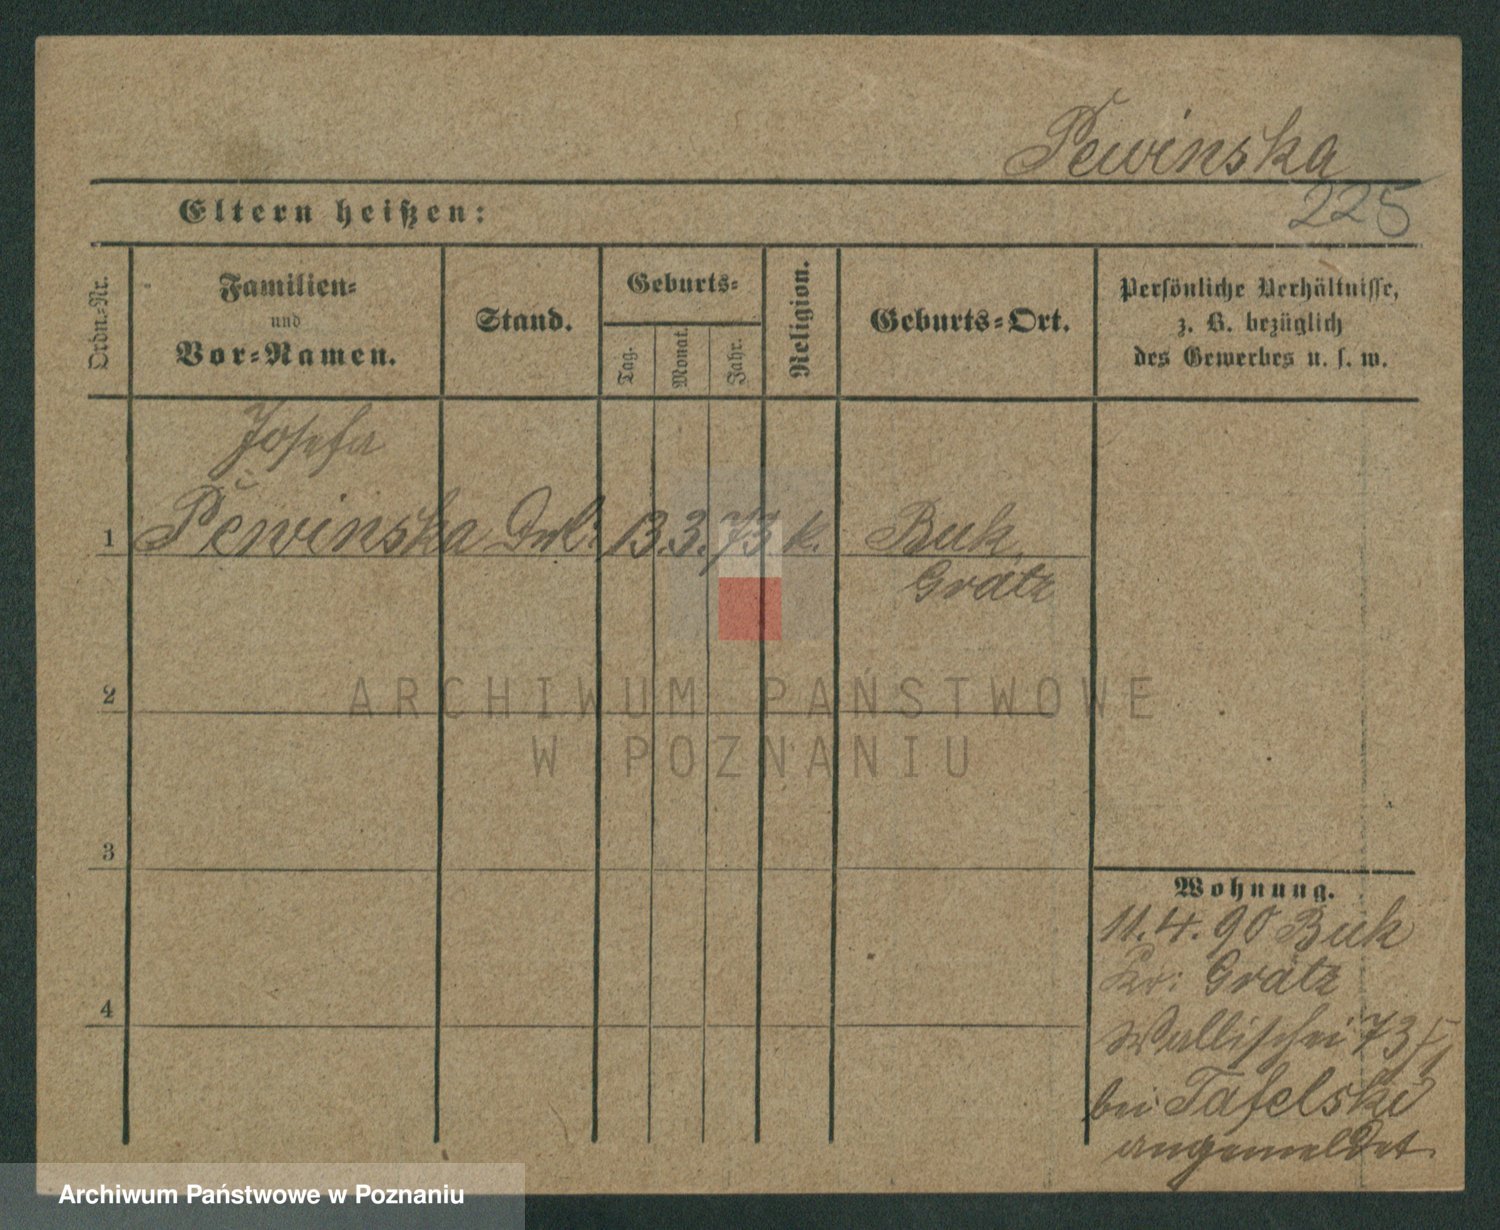 Pewinska
225
Eltern heißen:
Ordn.-Nr.
Familien-
und
Vor-Namen.
Stand.
Geburts-
Tag.
Monat.
Jahr.
Religion.
Geburts-Ort.
Persönliche Verhältnisse,
z. B. bezüglich
des Gewerbes u. s. w.
Josefa
1 Pewinska 13. 3. 73 k. Buk
Grätz
2
3
4
Wohnung.
11. 4. 90 Buk
Kr: Grätz
Wallischei 73
bei Tafelski
angemeldet.
ARCHIWUM PAŃSTWOWE
W POZNANIU
Archiwum Państwowe w Poznaniu